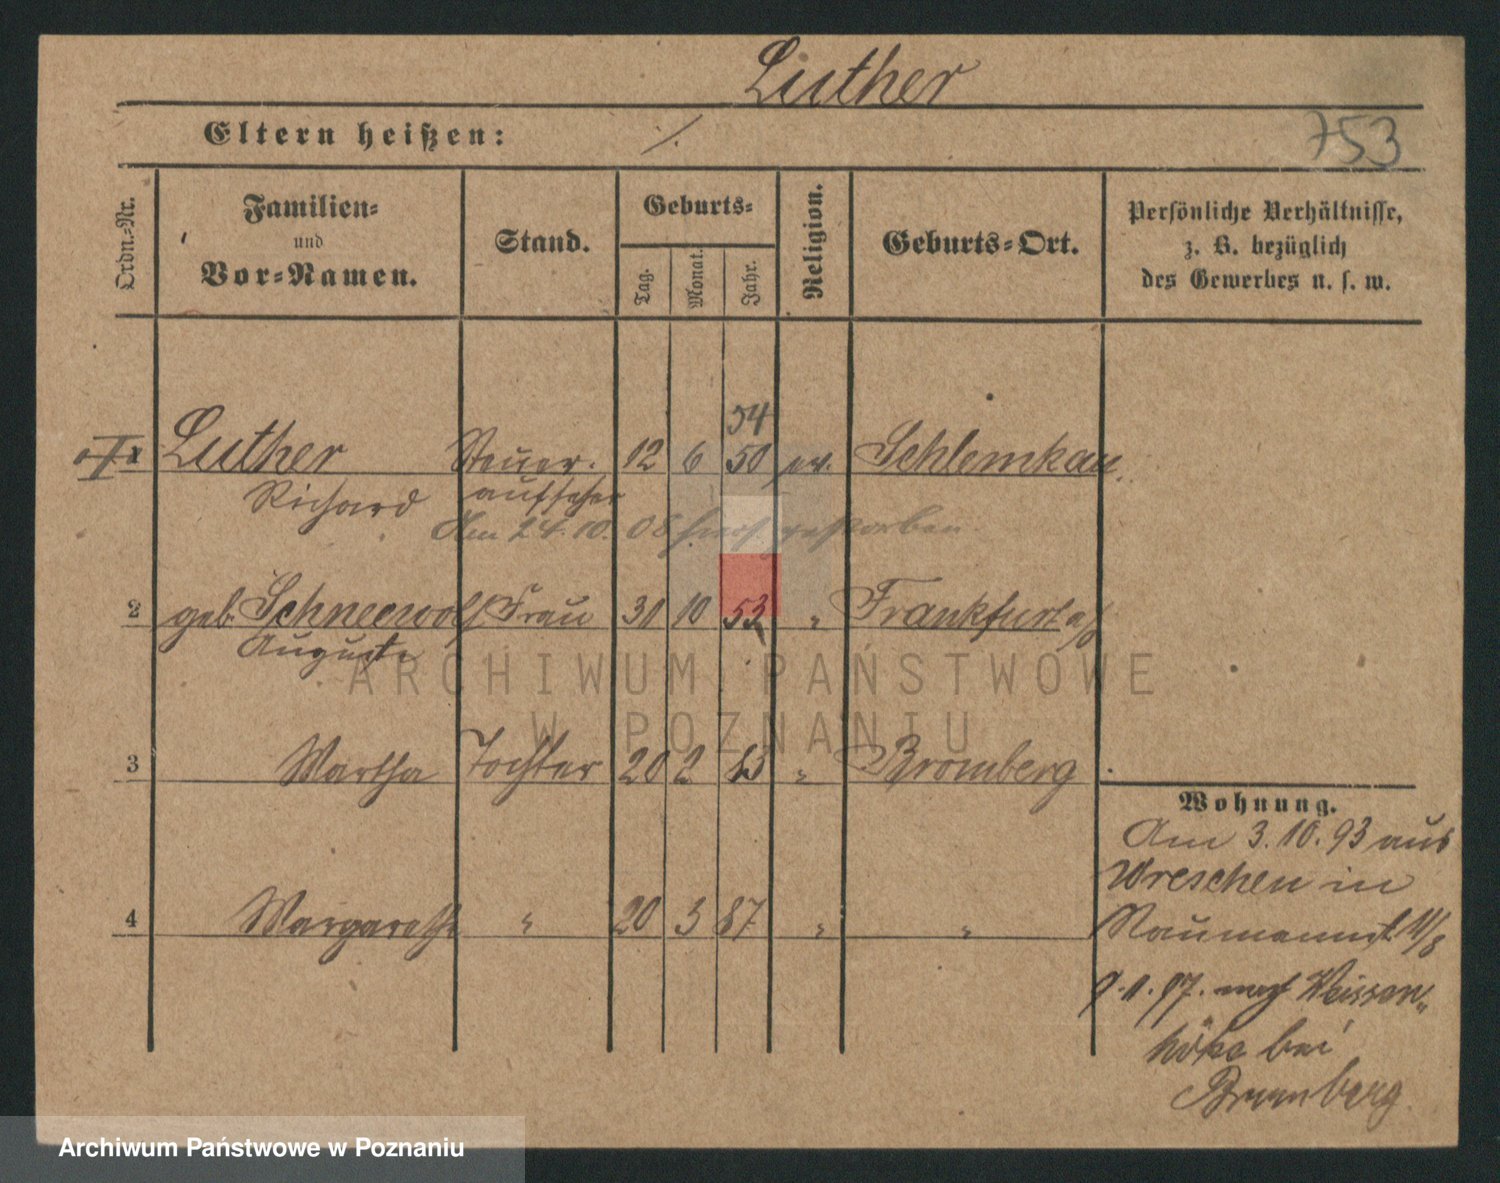 Luther
Eltern heißen: ⁒
753
Ordn.-Nr.
Familien-
und
Vor-Namen.
Stand.
Geburts-
Tag.
Monat.
Jahr.
Religion.
Geburts-Ort.
Persönliche Verhältnisse,
z. B. bezüglich
des Gewerbes u. s. w.
54
1 Luther Steuer- 12 6 50 ev. Schlemkau
Richard aufseher
Am 24.10.08 hier gestorben
2 geb. Schneewolf Frau 31 10 53 " Frankfurt a/O
Auguste
ARCHIWUM PAŃSTWOWE
W POZNANIU
3 Martha Tochter 20 2 83 " Bromberg
Wohnung.
Am 3.10.93 aus
Wreschen in
4 Margarethe " 20 3 87 " "
Naumannst. 11/8
9.11.97. nach Weissen-
höhe bei
Bromberg
Archiwum Państwowe w Poznaniu